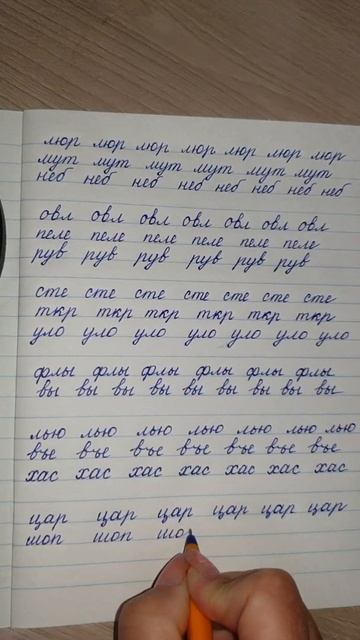 люр люр люр люр люр люр люр
мут мут мут мут мут мут
неб неб неб неб неб неб неб
овл овл овл овл овл овл овл
пеле пеле пеле пеле пеле пеле
рув рув рув рув рув рув
сте сте сте сте сте сте сте
ткр ткр ткр ткр ткр ткр
уло уло уло уло уло уло уло
флы флы флы флы флы флы
вы вы вы вы вы вы вы вы
лью лью лью лью лью лью лью
въе въе въе въе въе въе въе
хас хас хас хас хас хас хас
цар цар цар цар цар цар
шоп шоп шо